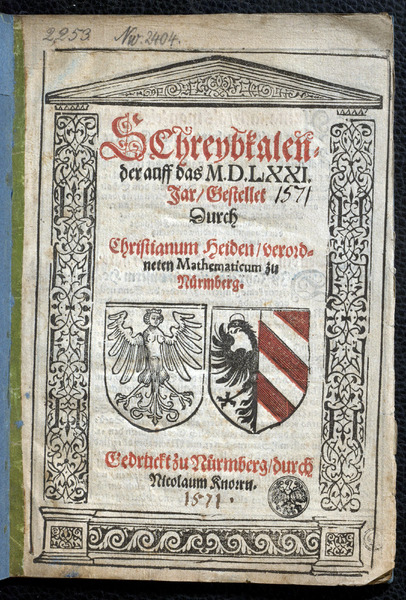 2253 Nw. 2404.
SChreybkalen-
der auff das M.D.LXXI.
Jar/Gestellet 1571
Durch
Christianum Heiden/verord-
neten Mathematicum zu
Nürmberg.
Gedruckt zu Nürmberg/durch
Nicolaum Knorrn.
1571.